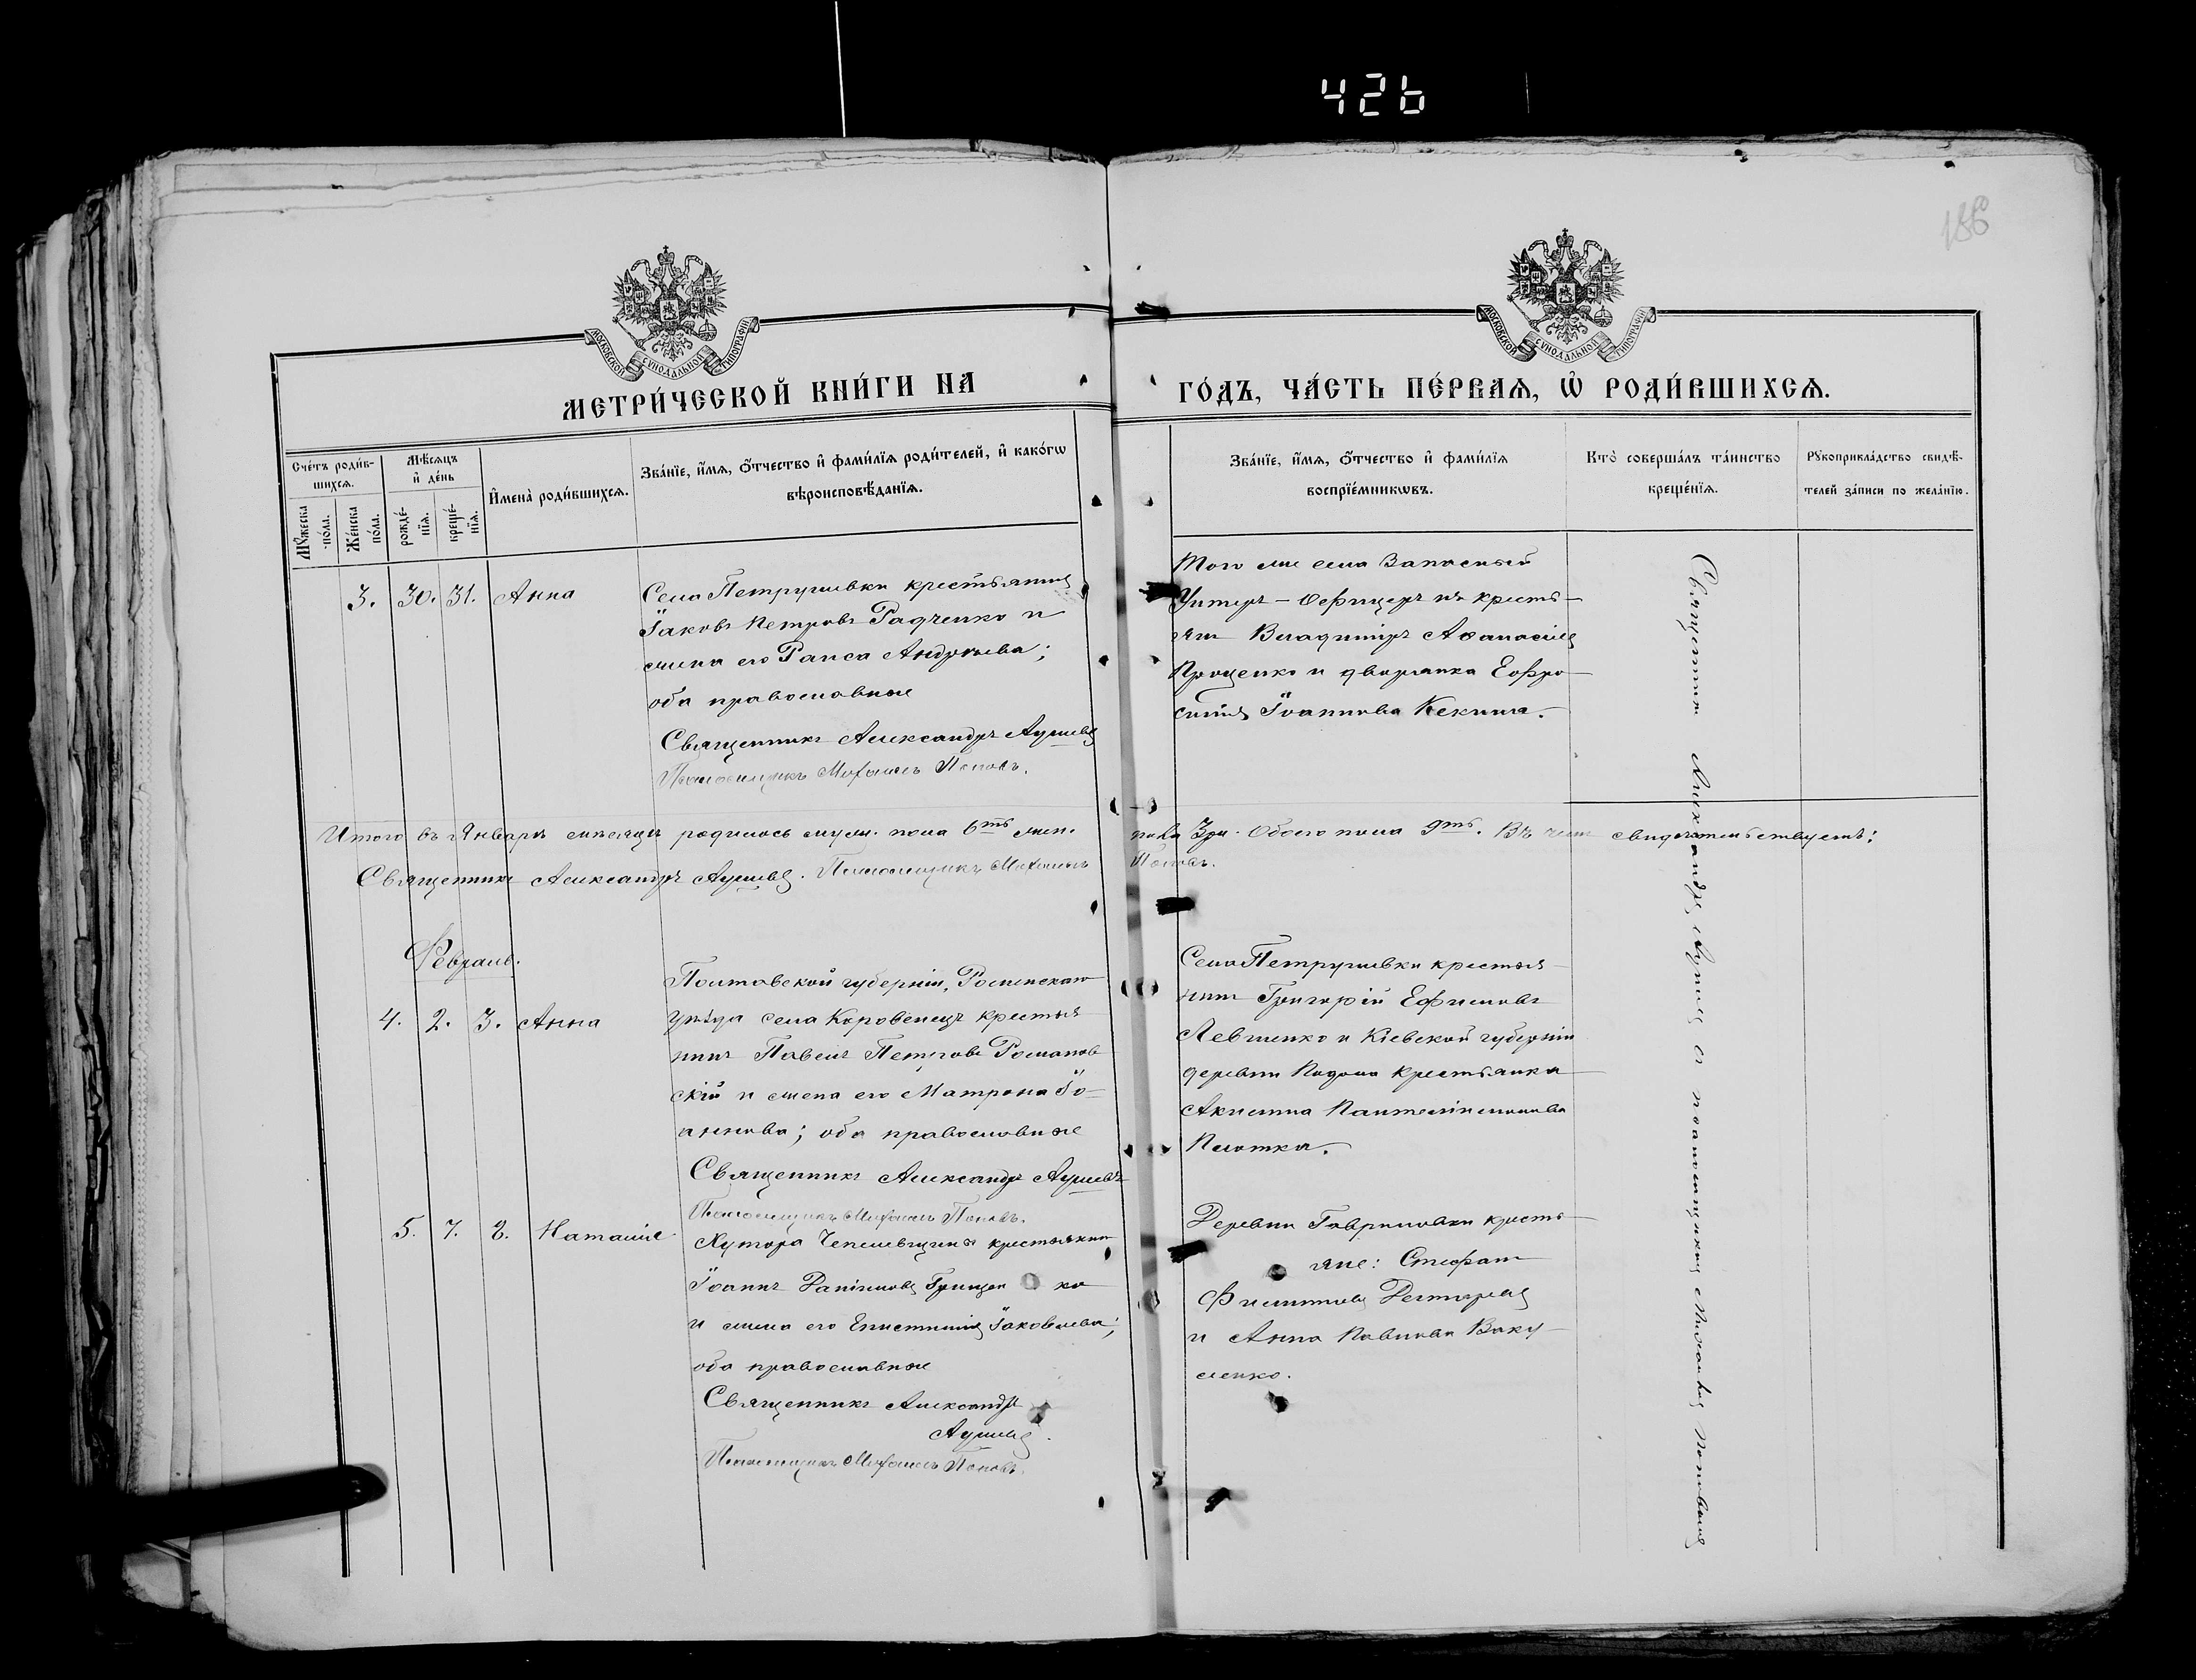 426
186
МОСКОВСКОЙ СѴНОДАЛЬНОЙ ТИПОГРАФІИ
МОСКОВСКОЙ СѴНОДАЛЬНОЙ ТИПОГРАФІИ
МЕТРИ́ЧЕСКОЙ КНИ́ГИ НА
ГО́ДЪ, ЧА́СТЬ ПЕ́РВАЯ, Ѡ РОДИ́ВШИХСЯ.
Сче́тъ роди́в-
шихся.
Мꙋ́жеска по́ла.
Же́нска по́ла.
Мѣ́сяцъ и де́нь
рожде́-нїя.
креще́-нїя.
Имена̀ роди́вшихся.
Зва́нїе, и́мя, о́тчество и фами́лїя роди́телей, и како́гѡ
вѣроисповѣ́данїя.
Зва́нїе, и́мя, о́тчество и фами́лїя
воспрїе́мникѡвъ.
Кто̀ соверша́лъ та́инство
креще́нїя.
Рꙋкоприкла́дство свидѣ́-
телей за́писи по жела́нїю.
3. 30. 31. Анна
Села Петрушевки крестьянинъ
Іаковъ Петровъ Радченко и
жена его Раиса Андреева;
оба православные
Священникъ Александръ
Псаломщикъ Михаилъ Поповъ.
Того же села Запасный
Унтеръ-Офицеръ изъ кресть-
янъ Владиміръ Аѳанасіевъ
Проценко и дворянка Евфро-
синія Іоаннова Кекина.
Итого въ Январѣ мѣсяцѣ родилось муж. пола 6ть жен. пола 3ри. Обоего пола 9ть. Въ чемъ свидѣтельствуетъ:
Священникъ Александръ Псаломщикъ Михаилъ Поповъ.
Февраль.
4. 2. 3. Анна
Полтавской губерніи, Роменскаго
уѣзда села Коровенецъ крестья
нинъ Павелъ Петровъ Романов
скій и жена его Матрона Іо-
аннова; оба православные
Священникъ Александръ
Псаломщикъ Михаилъ Поповъ.
Села Петрушевки крестья
нинъ Григорій Ефимовъ
Левченко и Кіевской губерніи
деревни крестьянка
Акилина Пантелеимонова
5. 7. 8. Наталія
Хутора крестьянинъ
Іоаннъ Даніиловъ Гриценко
и жена его Епистимія Іаковлева;
оба православные
Священникъ Александръ
Псаломщикъ Михаилъ Поповъ.
Деревни Гавриловки кресть
яне: Стефанъ
Филипповъ Дегтяревъ
и Анна ПавловаВаку
ленко.
Священникъ Александръ съ псаломщикомъ Михаиломъ Поповымъ